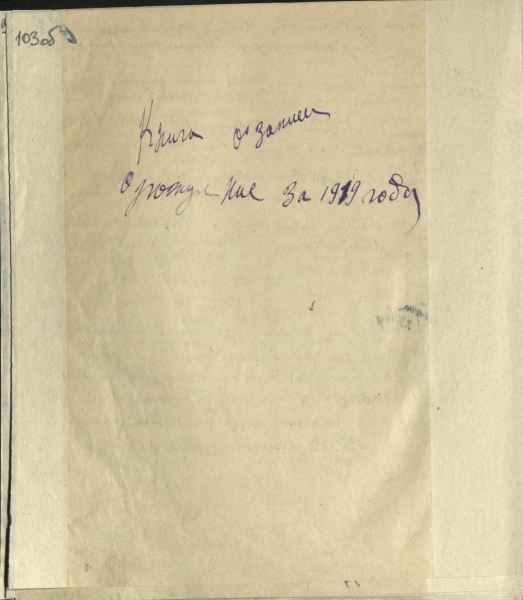 103об
Книга о записи
о рождение за 1919 году